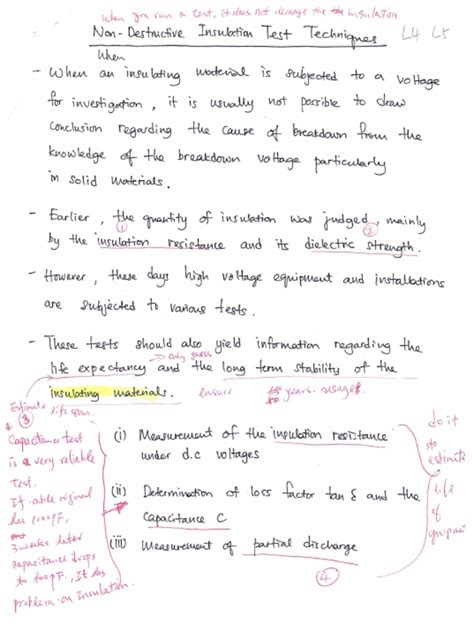 When you run a test, it does not damage the insulation
Non-Destructive Insulation Test Techniques L4 L5
When
- When an insulating material is subjected to a voltage
for investigation, it is usually not possible to draw
conclusion regarding the cause of breakdown from the
knowledge of the breakdown voltage particularly
in solid materials.
- Earlier, the quantity of insulation was judged, mainly
① ②
by the insulation resistance and its dielectric strength.
- However, these days high voltage equipment and installations
are subjected to various tests.
- These tests should also yield information regarding the
life expectancy and the long term stability of the
only guess
insulating materials. ensure years
Estimate life span
③
Capacitance test
is a very reliable
test.
If original
has 1000pF,
3 weeks later
capacitance drops
to pF, It has
problem on Insulation.
(i) Measurement of the insulation resistance
under d.c voltages
(ii) Determination of loss factor tan δ and the
Capacitance C
(iii) Measurement of partial discharge
④
do it
to
estimate
life
of